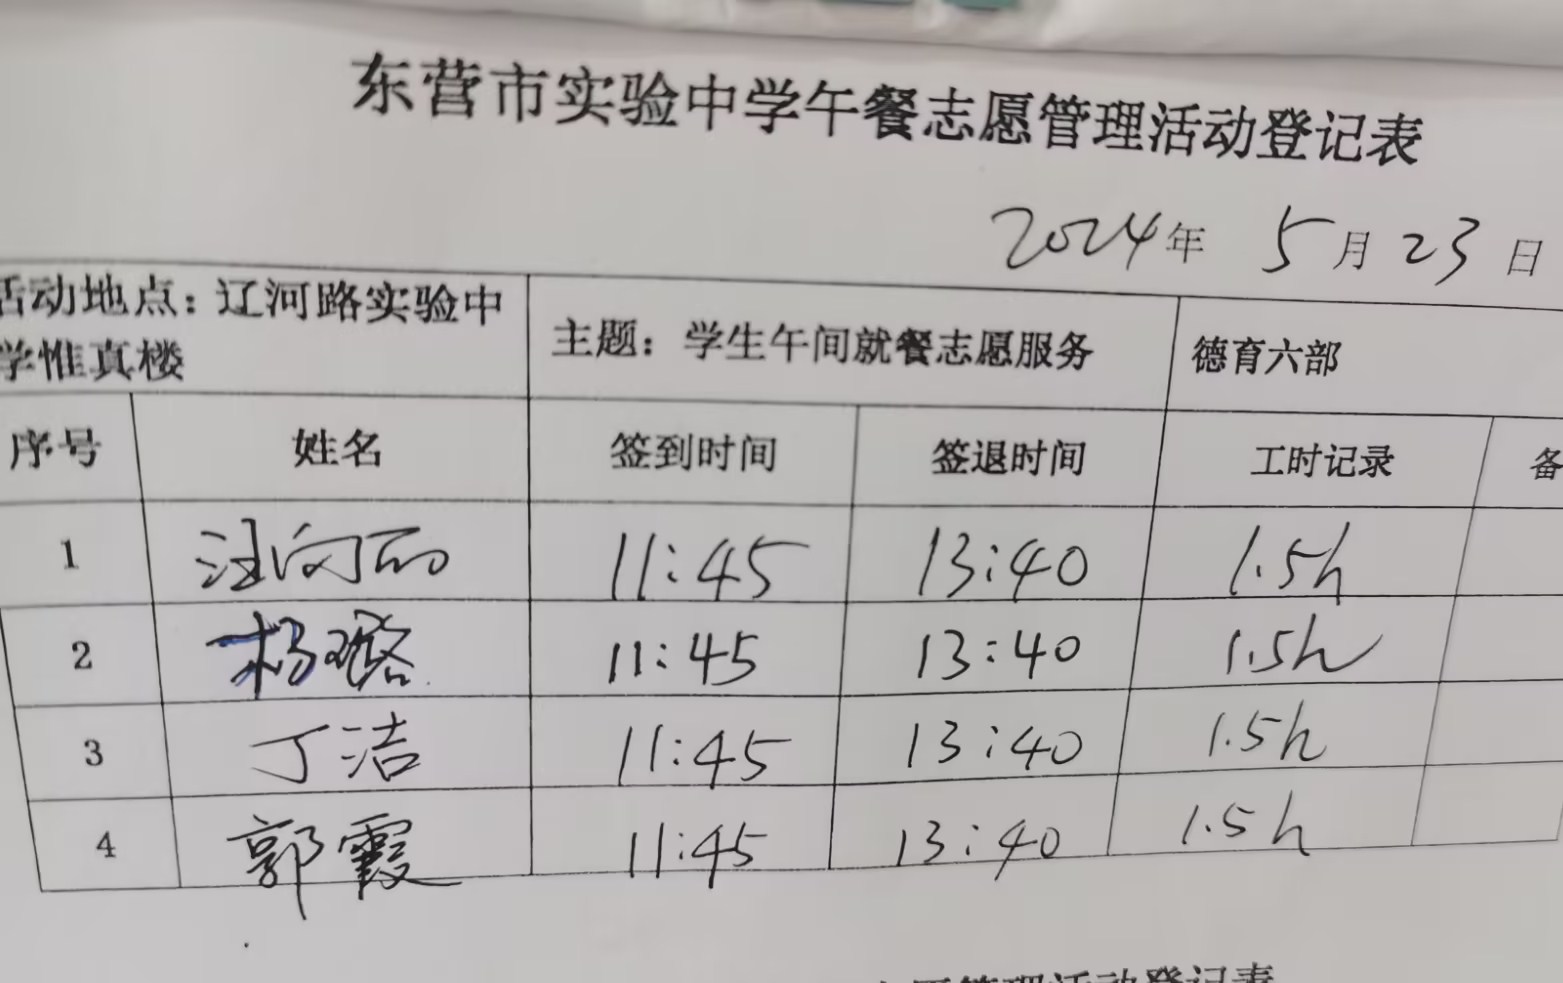 东营市实验中学午餐志愿管理活动登记表
2024年 5月23日
活动地点：辽河路实验中
学惟真楼
主题：学生午间就餐志愿服务
德育六部
序号 姓名 签到时间 签退时间 工时记录 备
1 汪向丽 11:45 13:40 1.5h
2 杨璐 11:45 13:40 1.5h
3 丁洁 11:45 13:40 1.5h
4 郭霞 11:45 13:40 1.5h
愿管理活动登记表